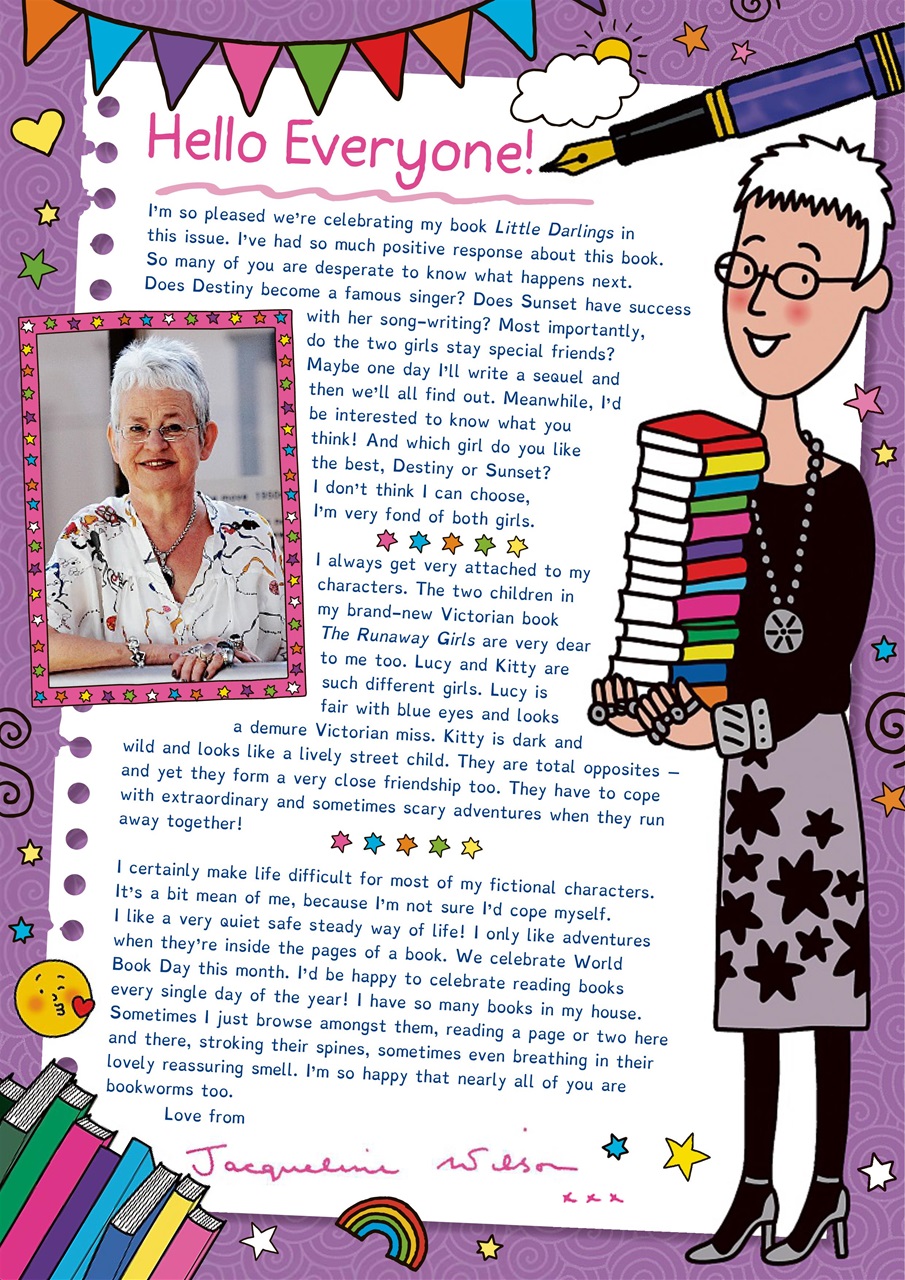 Hello Everyone!
I'm so pleased we're celebrating my book Little Darlings in
this issue. I've had so much positive response about this book.
So many of you are desperate to know what happens next.
Does Destiny become a famous singer? Does Sunset have success
with her song-writing? Most importantly,
do the two girls stay special friends?
Maybe one day I'll write a sequel and
then we'll all find out. Meanwhile, I'd
be interested to know what you
think! And which girl do you like
the best, Destiny or Sunset?
I don't think I can choose,
I'm very fond of both girls.
I always get very attached to my
characters. The two children in
my brand-new Victorian book
The Runaway Girls are very dear
to me too. Lucy and Kitty are
such different girls. Lucy is
fair with blue eyes and looks
a demure Victorian miss. Kitty is dark and
wild and looks like a lively street child. They are total opposites –
and yet they form a very close friendship too. They have to cope
with extraordinary and sometimes scary adventures when they run
away together!
I certainly make life difficult for most of my fictional characters.
It's a bit mean of me, because I'm not sure I'd cope myself.
I like a very quiet safe steady way of life! I only like adventures
when they're inside the pages of a book. We celebrate World
Book Day this month. I'd be happy to celebrate reading books
every single day of the year! I have so many books in my house.
Sometimes I just browse amongst them, reading a page or two here
and there, stroking their spines, sometimes even breathing in their
lovely reassuring smell. I'm so happy that nearly all of you are
bookworms too.
Love from
Jacqueline Wilson
x x x